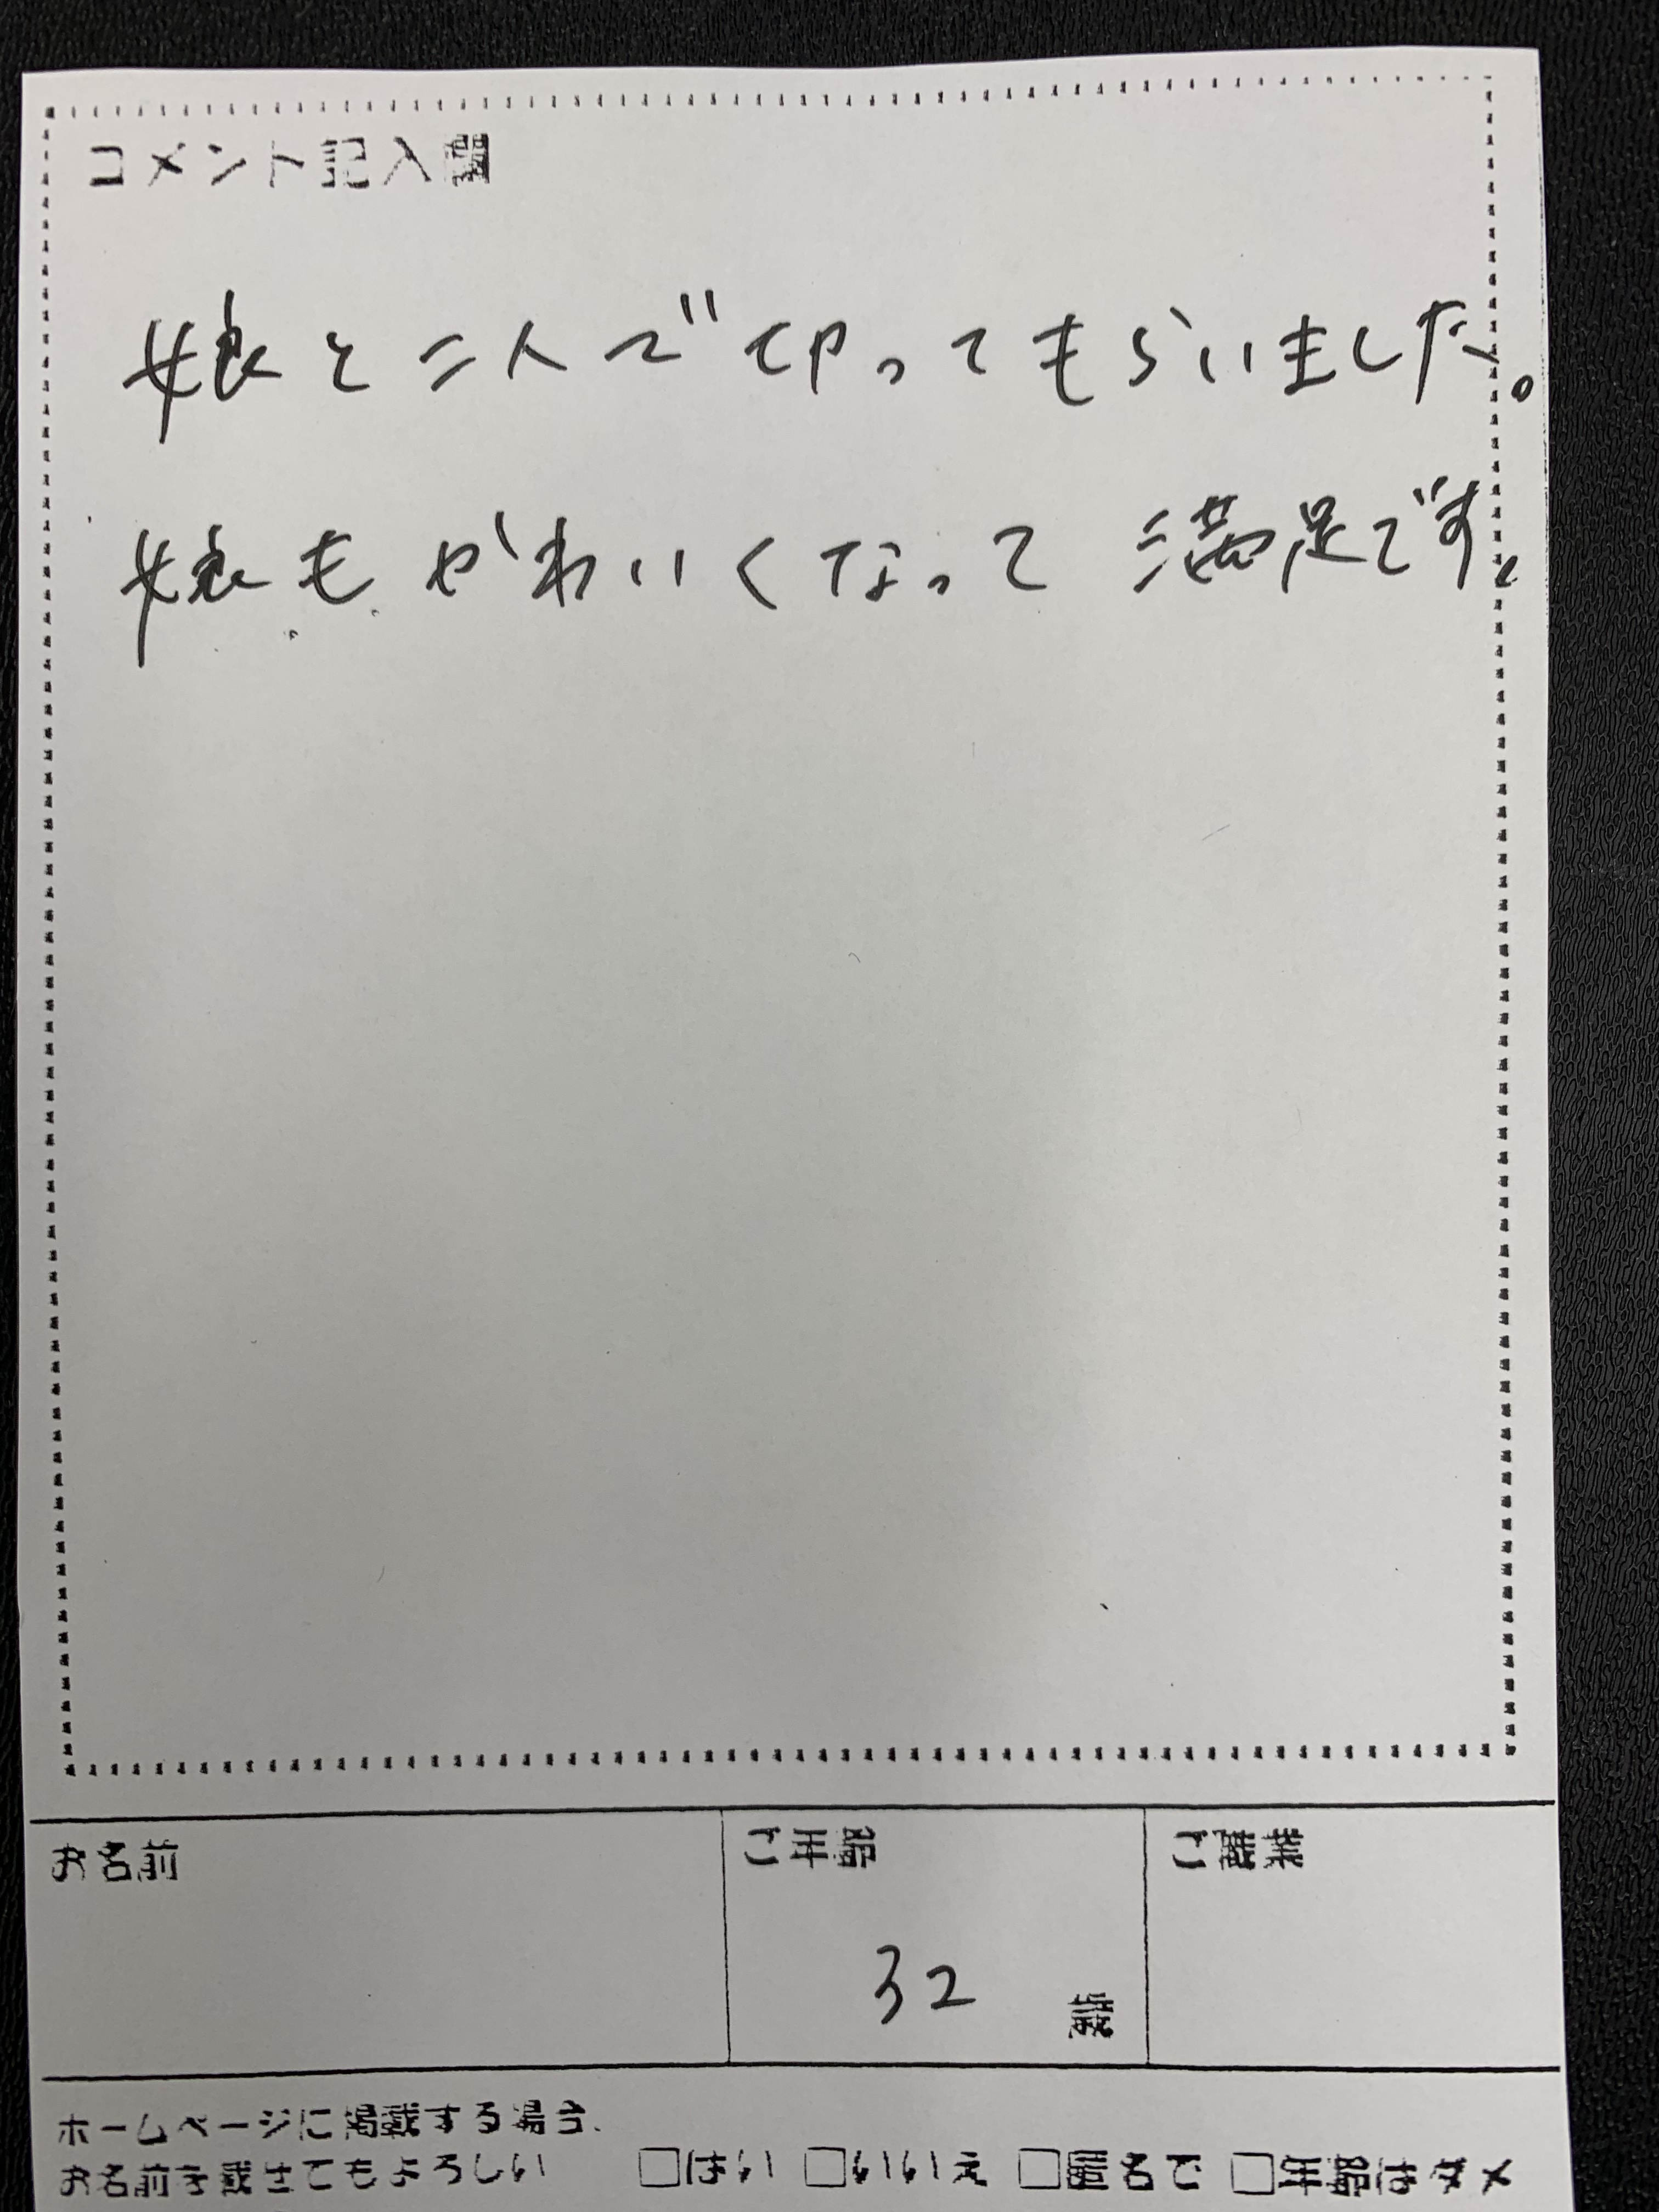 コメント記入欄
娘と二人で切ってもらいました。
娘もかわいくなって 満足です。
お名前
ご年齢
ご職業
32
歳
ホームページに掲載する場合、
お名前を載せてもよろしい □はい □いいえ □匿名で □年齢はダメ